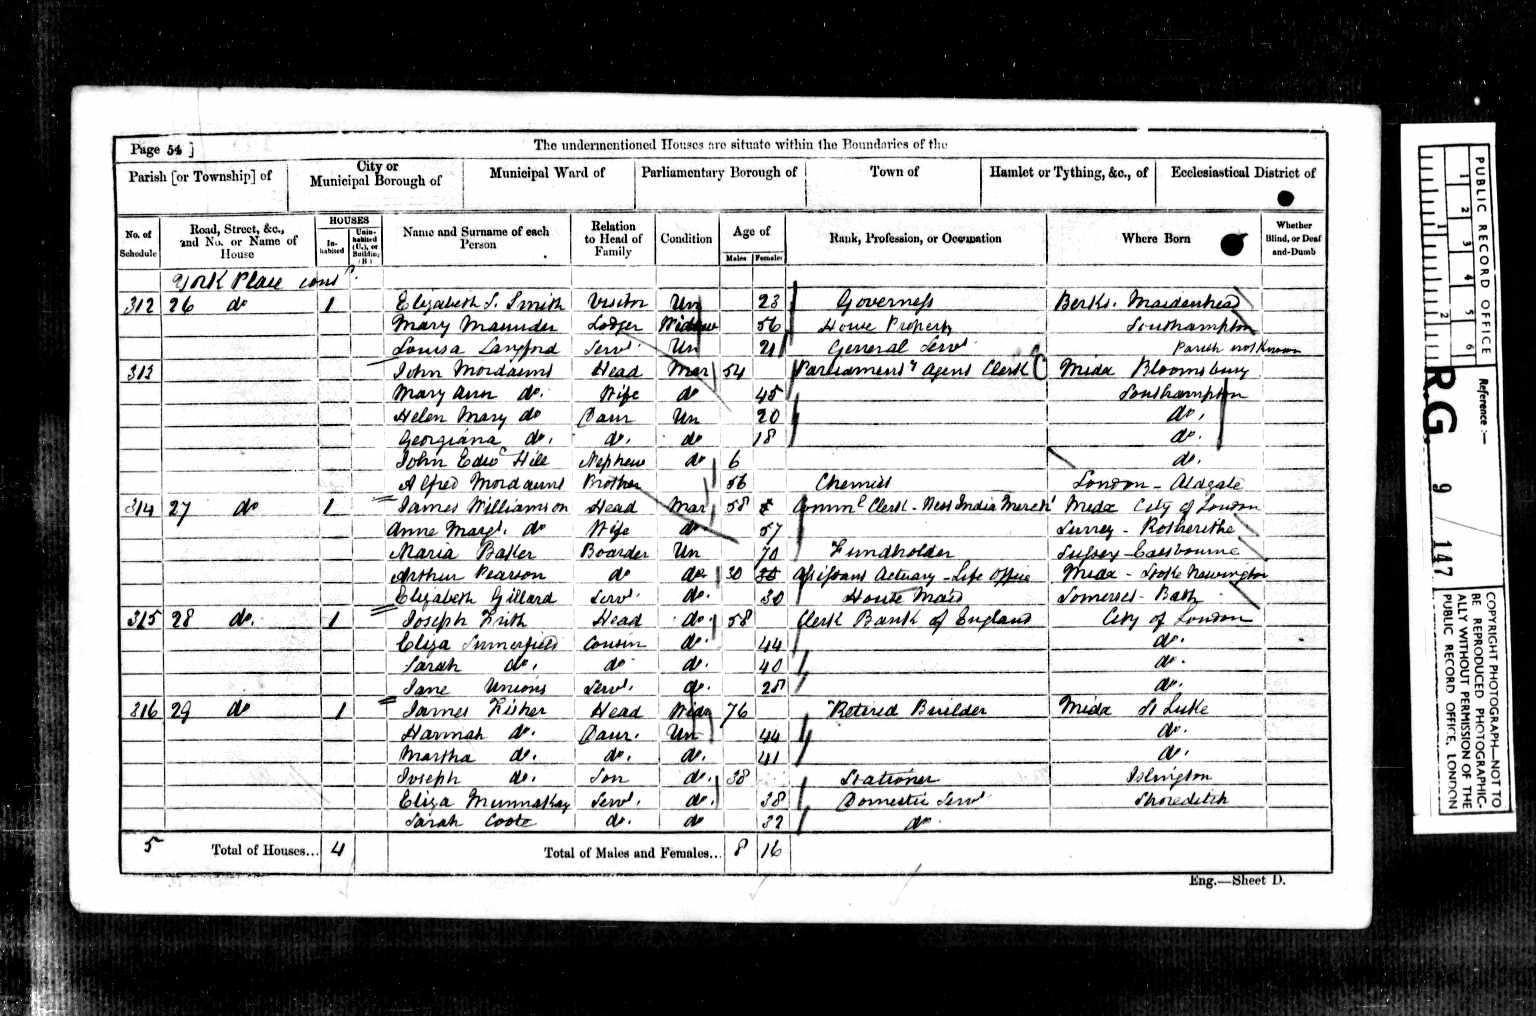 Page 54 ]
The undermentioned Houses are situate within the Boundaries of the
Parish [or Township] of
City or Municipal Borough of
Municipal Ward of
Parliamentary Borough of
Town of
Hamlet or Tything, &c., of
Ecclesiastical District of
No. of Schedule
Road, Street, &c., and No. or Name of House
HOUSES
Inhabited
Uninhabited (U.), or Building (B.)
Name and Surname of each Person
Relation to Head of Family
Condition
Age of
Males
Females
Rank, Profession, or Occupation
Where Born
Whether Blind, or Deaf-and-Dumb
York Place contd.
312 26 do 1 Elizabeth S. Smith Visitor Un 23 Governess Berks. Maidenhead
Mary Maunder Lodger Widow 56 House Property Southampton
Louisa Langford Servt. Un 21 General Servt Parish not Known
313 John Mordaunt Head Mar 54 Parliamenty Agents Clerk Midx Bloomsbury
Mary Ann do. Wife do 45 Southampton
Helen Mary do Daur Un 20 do.
Georgiana do. do. do 18 do.
John Edwd Hill Nephew do 6 do.
Alfred Mordaunt Brother 56 Chemist London - Aldgate
314 27 do 1 James Williamson Head Mar 58 Comml Clerk - West India Mercht Midx City of London
Anne Margt. do Wife do 57 Surrey - Rotherithe
Maria Baker Boarder Un 70 Fundholder Sussex - Eastbourne
Arthur Pearson do do 30 Assistant Actuary - Life Office Midx - Stoke Newington
Elizabeth Gillard Servt. do. 30 House Maid Somerset - Bath
315 28 do. 1 Joseph Frith Head do. 58 Clerk Bank of England City of London
Eliza Sumerfield Cousin do. 44 do.
Sarah do. do do. 40 do.
Jane Unions Servt. do. 28 do.
316 29 do 1 James Fisher Head Widr 76 Retired Builder Midx St Luke
Hannah do. Daur. Un 44 do.
Martha do. do. do. 41 do.
Joseph do. Son do. 38 Stationer Islington
Eliza Servt. do. 38 Domestic Servt Shoreditch
Sarah Coote do. do 32 do
5 Total of Houses... 4 Total of Males and Females... 8 16
Eng.—Sheet D.
PUBLIC RECORD OFFICE
1 2 3 4 5 6
1 2
Reference :—
R.G. 9 / 147
COPYRIGHT PHOTOGRAPH—NOT TO
BE REPRODUCED PHOTOGRAPHIC-
ALLY WITHOUT PERMISSION OF THE
PUBLIC RECORD OFFICE, LONDON